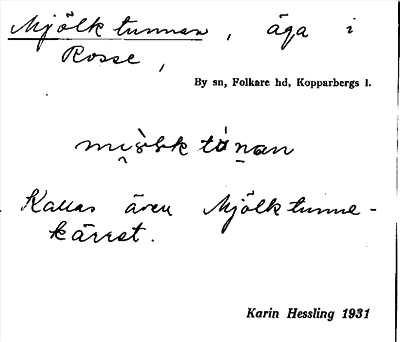 Mjölktunnan, äga i
Rosse,
By sn, Folkare hd, Kopparbergs l.
Kallas även Mjölktunne-
kärret.
Karin Hessling 1931